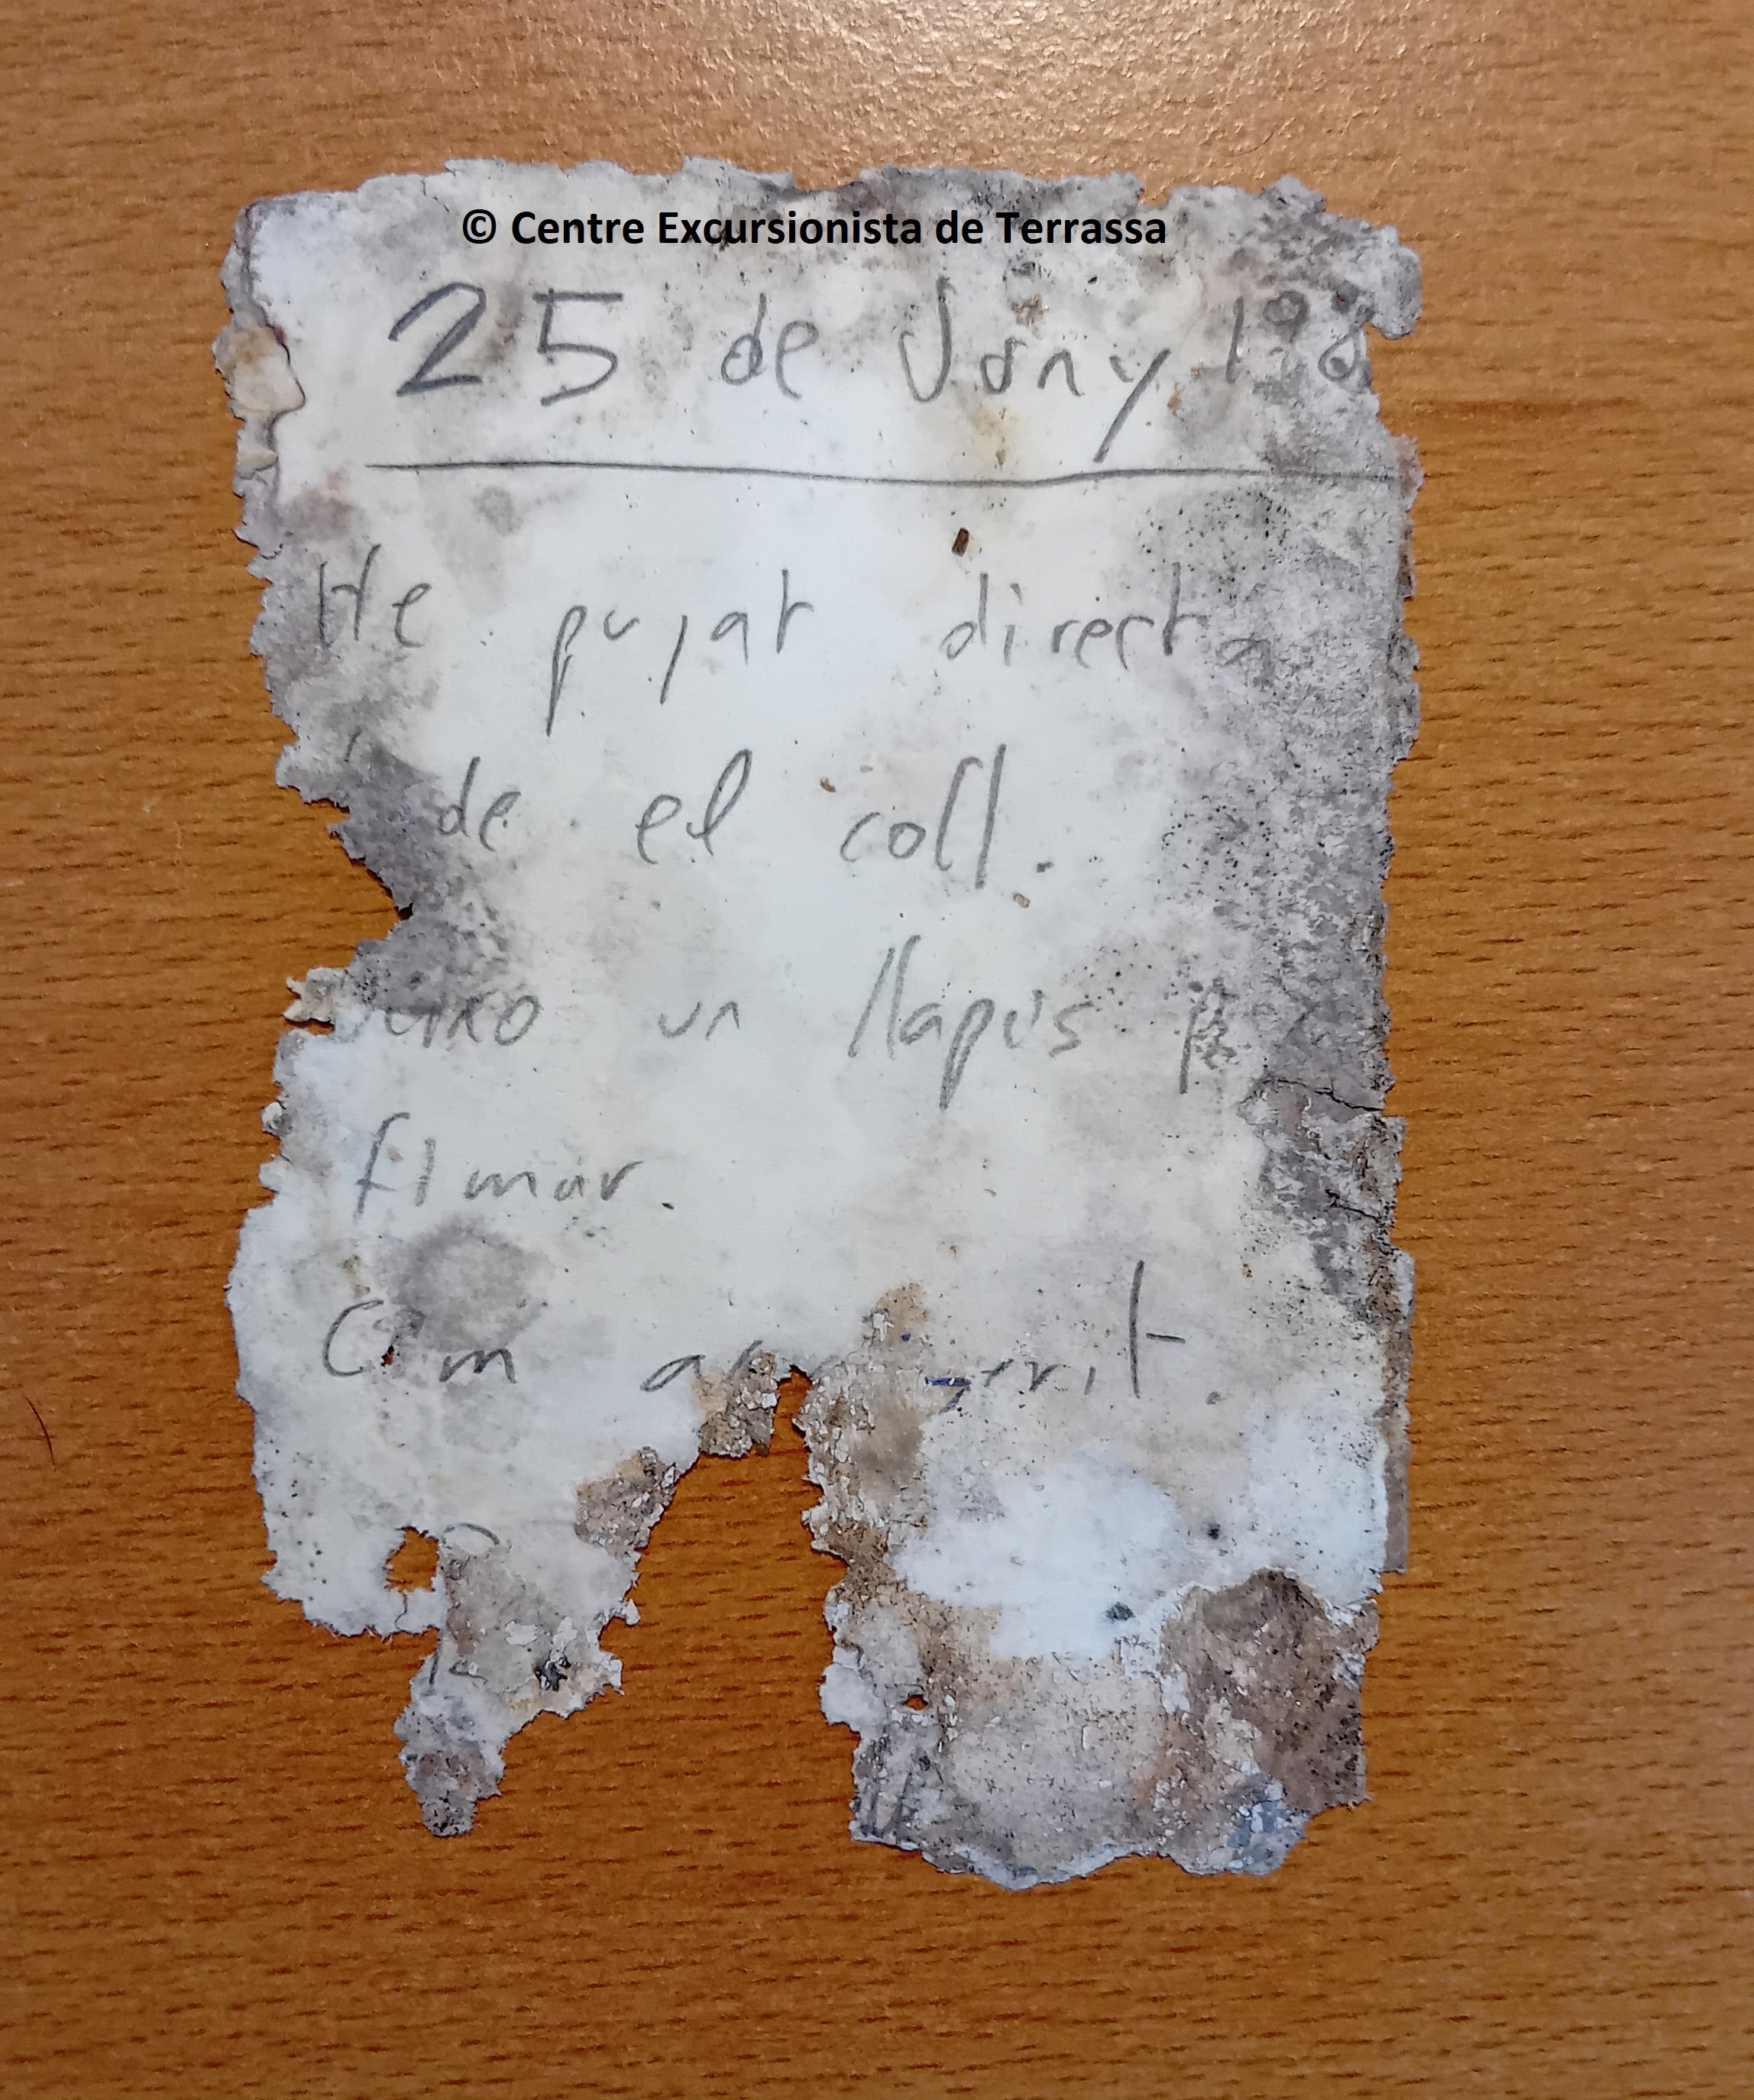 © Centre Excursionista de Terrassa
25 de Juny
He pujat directa
de el coll.
un llapis
firmar.
Cim